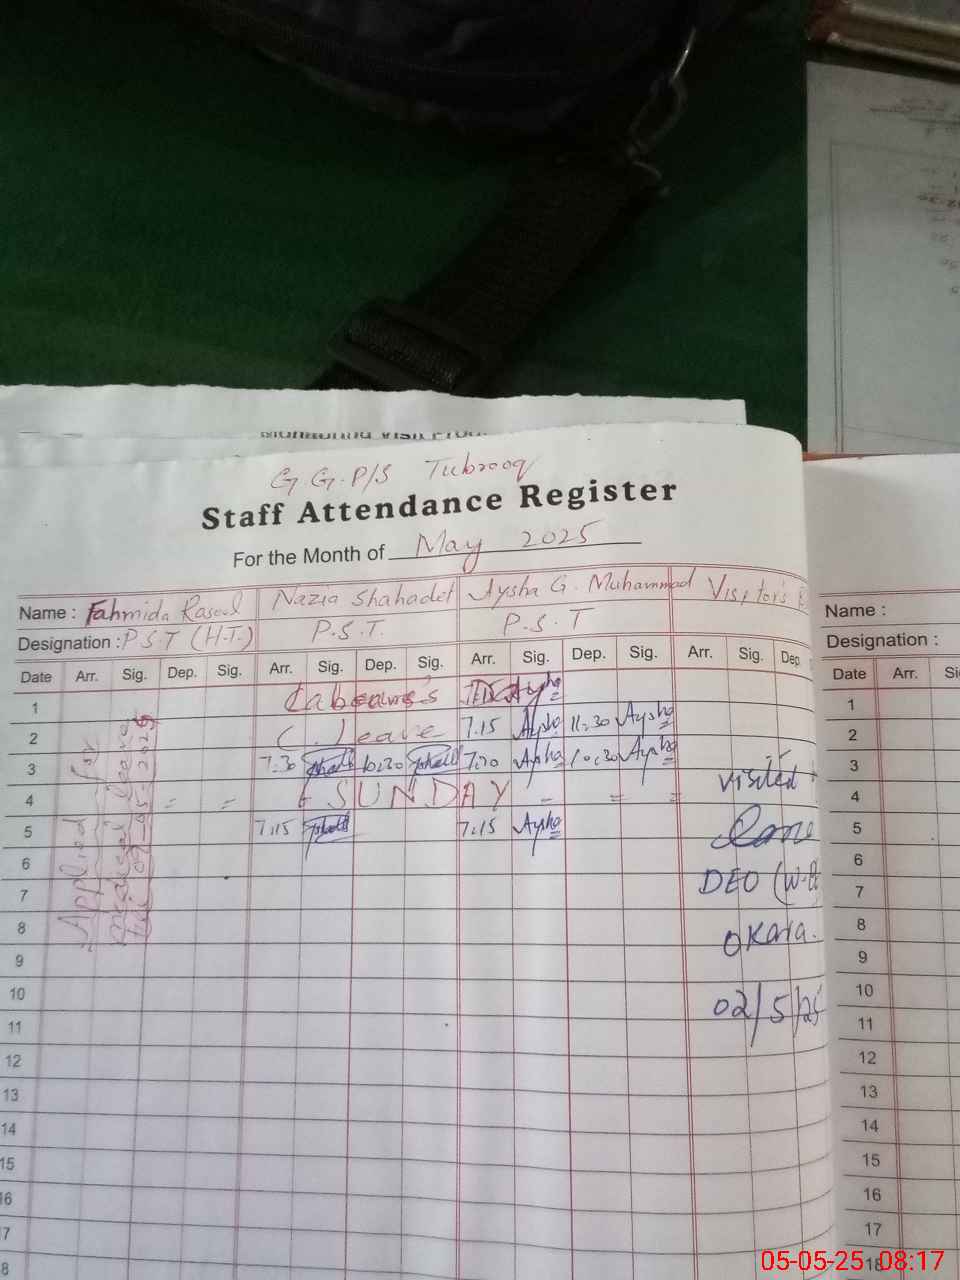 G.G.P/S Tubrooq
Staff Attendance Register
For the Month of May 2025
Name : Fahmida Rasool Nazia Shahadet Aysha G. Muhammad Visitor's
Designation : P.S.T (H.T.) P.S.T. P.S.T
Date Arr. Sig. Dep. Sig. Arr. Sig. Dep. Sig. Arr. Sig. Dep. Sig. Arr. Sig. Dep.
1 Aysha
2 C. Leave 7.15 Aysha 11.30 Aysha
3 7.30 10:30 7.30 Aysha 10:30 Aysha
4 = = SUNDAY - = =
5 7.15 7.15 Aysha
6
7
8
9
10
11
12
13
14
15
16
17
18
Applied for
medical leave
visited
DEO (W-
Okara.
02/5/25
Name :
Designation :
Date Arr.
1
2
3
4
5
6
7
8
9
10
11
12
13
14
15
16
17
18
05-05-25 08:17